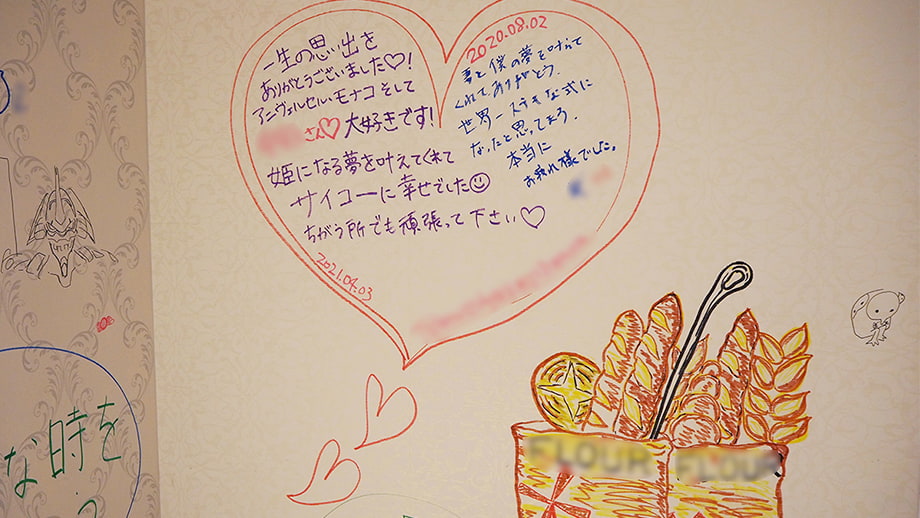 一生の思い出を
ありがとうございました♡!
アニヴェルセル・モナコ そして
さん♡大好きです!
姫になる夢を叶えてくれて
サイコーに幸せでした☺
ちがう所でも頑張って下さい♡
2021.04.03
2020.08.02
妻と僕の夢を叶えて
くれてありがとう.
世界一ステキな式に
なったと思ってます.
本当に
お疲れ様でした。
な時を
FLOUR
FLOUR